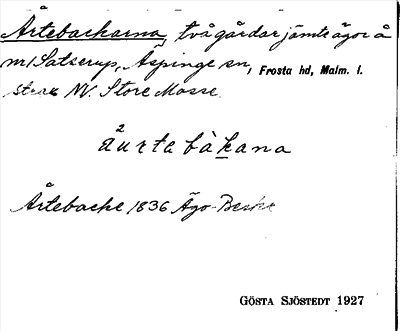 Årtebackarna, två gårdar jämte ägor å
m/ Satserup, Äspinge sn, Frosta hd, Malm. l.
strax NV. Store Mosse.
2
åurtabàkana
Årtebacke 1836 Ägo-Beskr
GÖSTA SJÖSTEDT 1927